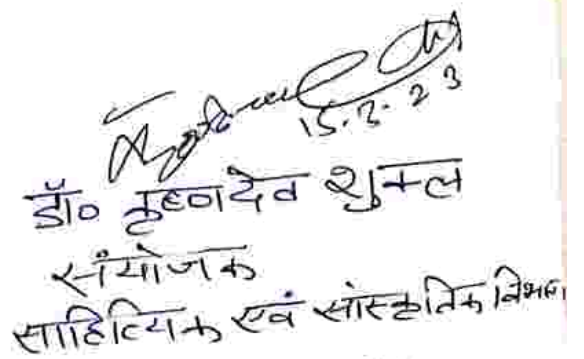 15.2.23
डॉ० कृष्णदेव शुक्ल
संयोजक
साहित्यिक एवं सांस्कृतिक विभाग